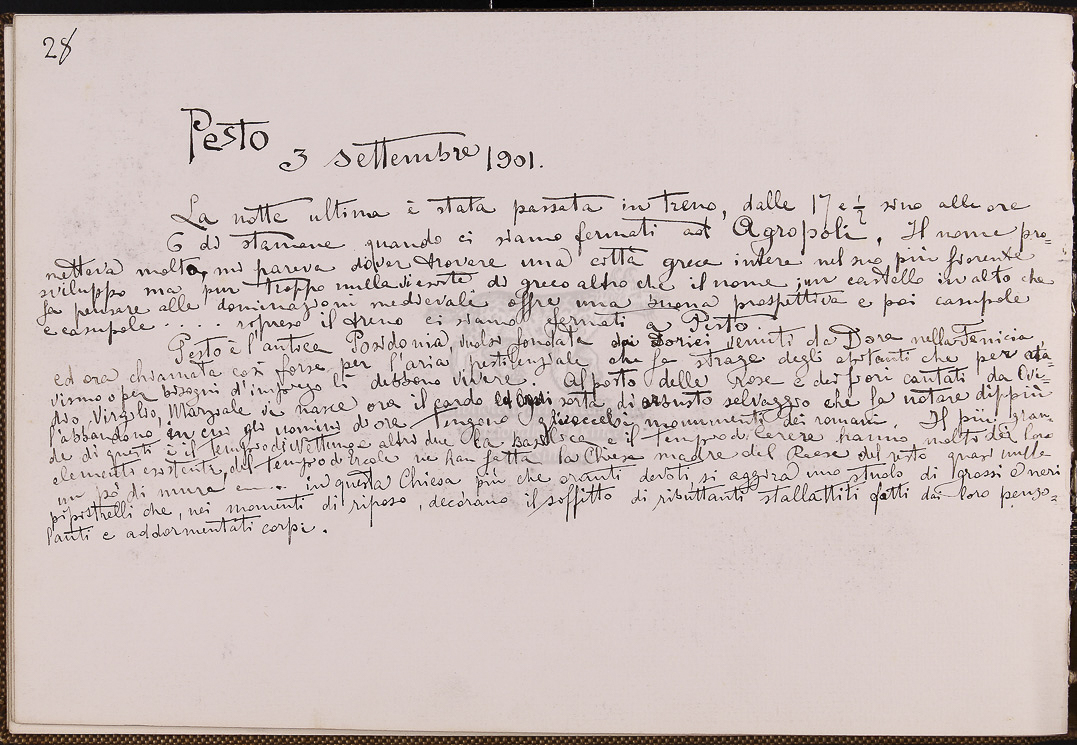 28
Pesto
3 settembre 1901.
La notte ultima è stata passata in treno, dalle 17 e ½ sino alle ore
6 di stamane quando ci siamo fermati ad Agropoli. Il nome pro=
metteva molto, mi pareva dover trovare una città greca intera nel suo più fiorente
sviluppo ma pur troppo nulla vi esiste di greco altro che il nome; un castello in alto che
fa pensare alle dominazioni medievali offre una buona prospettiva e poi casupole
e casupole . . . . ripreso il treno ci siamo fermati a Pesto.
Pesto è l'antica Posidonia vuolsi fondata dai Dorici venuti da Dora nella Fenicia
ed ora chiamata così forse per l'aria pestilenziale che fa strage degli abitanti che per ata=
vismo o per bisogni d'impiego lì debbono vivere. Al posto delle Rose e dei fiori cantati da Ovi=
dio, Virgilio, Marziale vi nasce ora il cardo ed ogni sorta di arbusto selvaggio che fa notare dippiù
l'abbandono in cui gli uomini di ora tengono gli eccelsi monumenti dei romani. Il più gran
de di questi è il tempio di Nettuno e altri due la basilica e il Tempio di Cerere hanno molto del loro
elemento esistente, del tempio di Ercole ne han fatta la Chiesa madre del Paese del resto quasi nulla
un pò di mura e . . . . in questa Chiesa più che oranti devoti, si aggira uno stuolo di grossi e neri
pipistrelli che, nei momenti di riposo, decorano il soffitto di ributtanti stallattiti fatti dai loro penzo=
lanti e addormentati corpi.